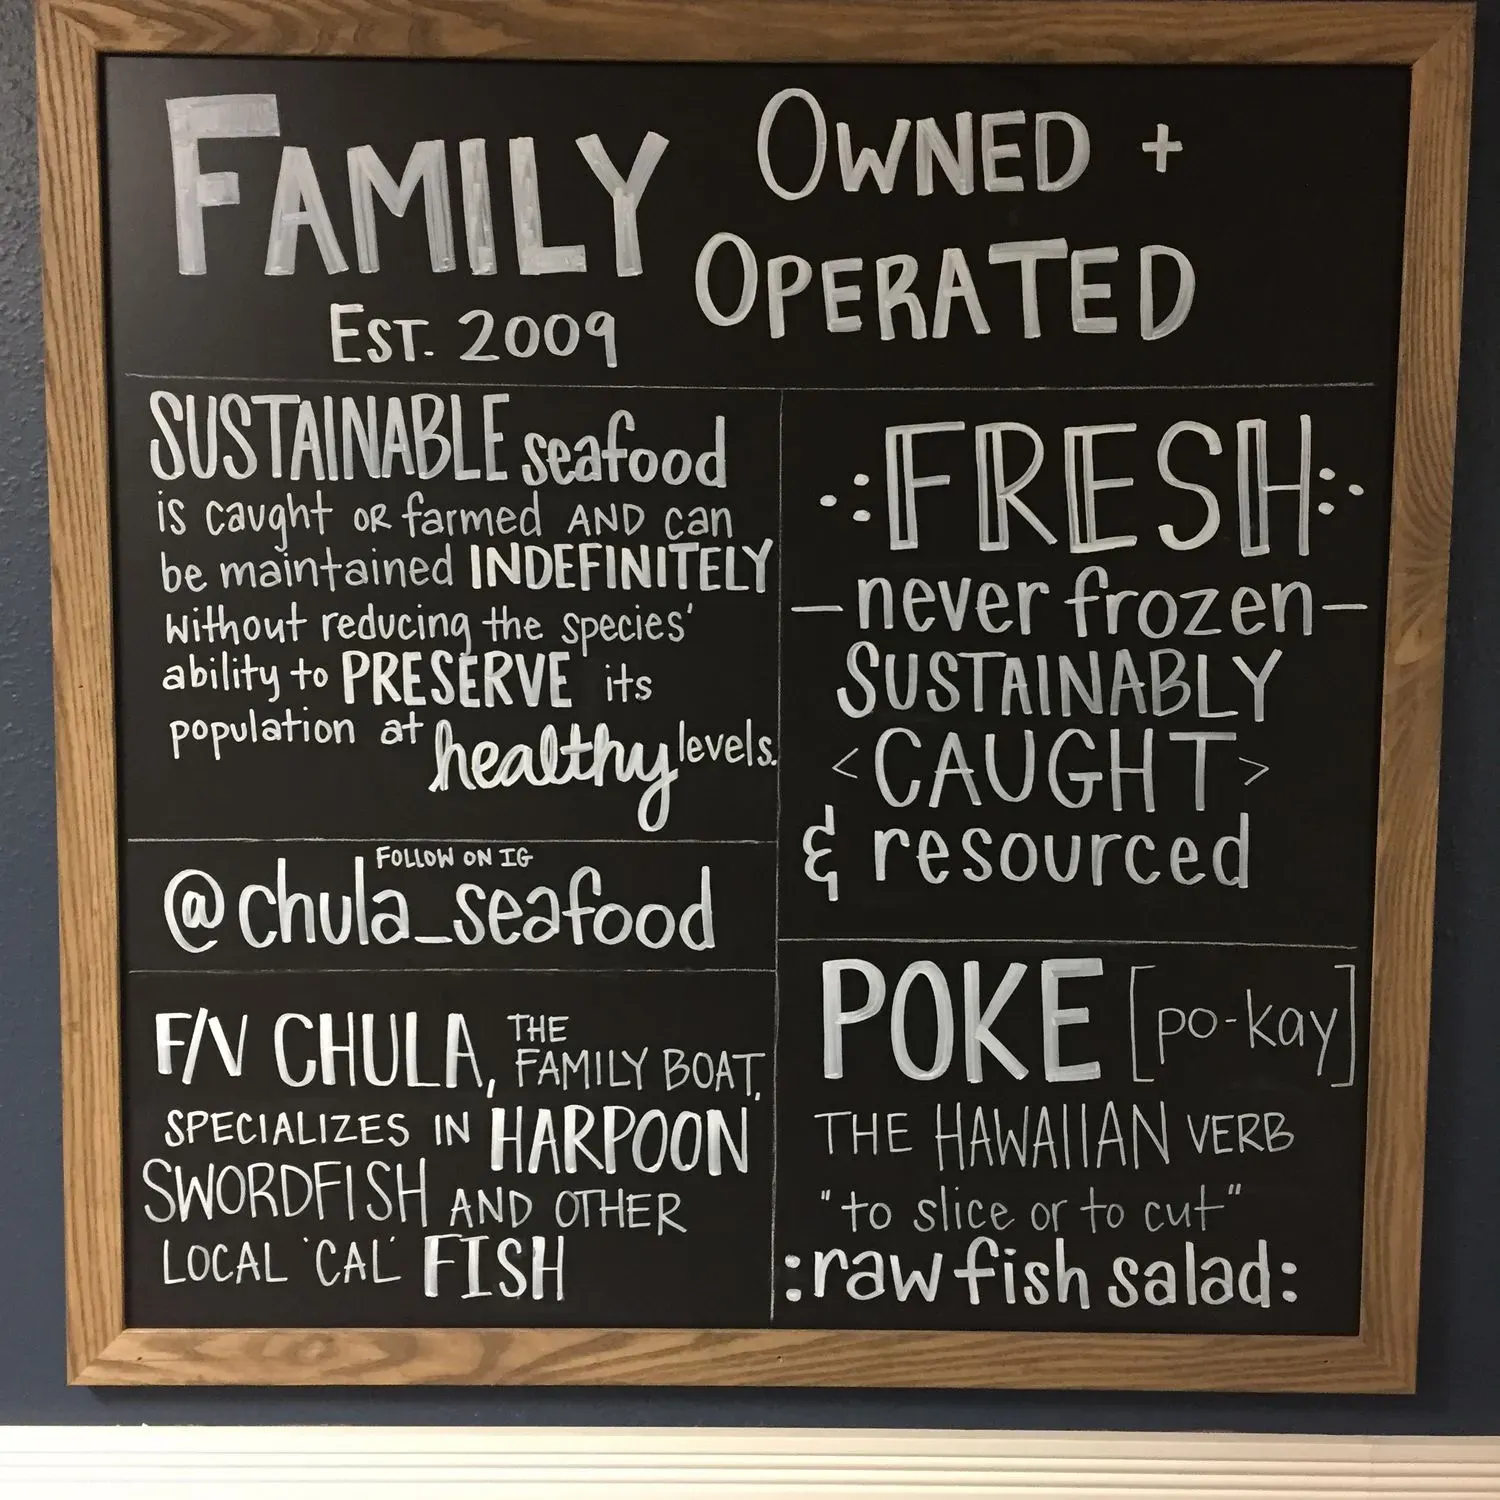 FAMILY OWNED +
OPERATED
EST. 2009
SUSTAINABLE seafood
is caught OR farmed AND can
be maintained INDEFINITELY
without reducing the species'
ability to PRESERVE its
population at healthy levels.
FOLLOW ON IG
@chula_seafood
F/V CHULA, THE
FAMILY BOAT,
SPECIALIZES IN HARPOON
SWORDFISH AND OTHER
LOCAL 'CAL' FISH
FRESH
- never frozen -
SUSTAINABLY
< CAUGHT >
& resourced
POKE [po-kay]
THE HAWAIIAN VERB
"to slice or to cut"
:raw fish salad: